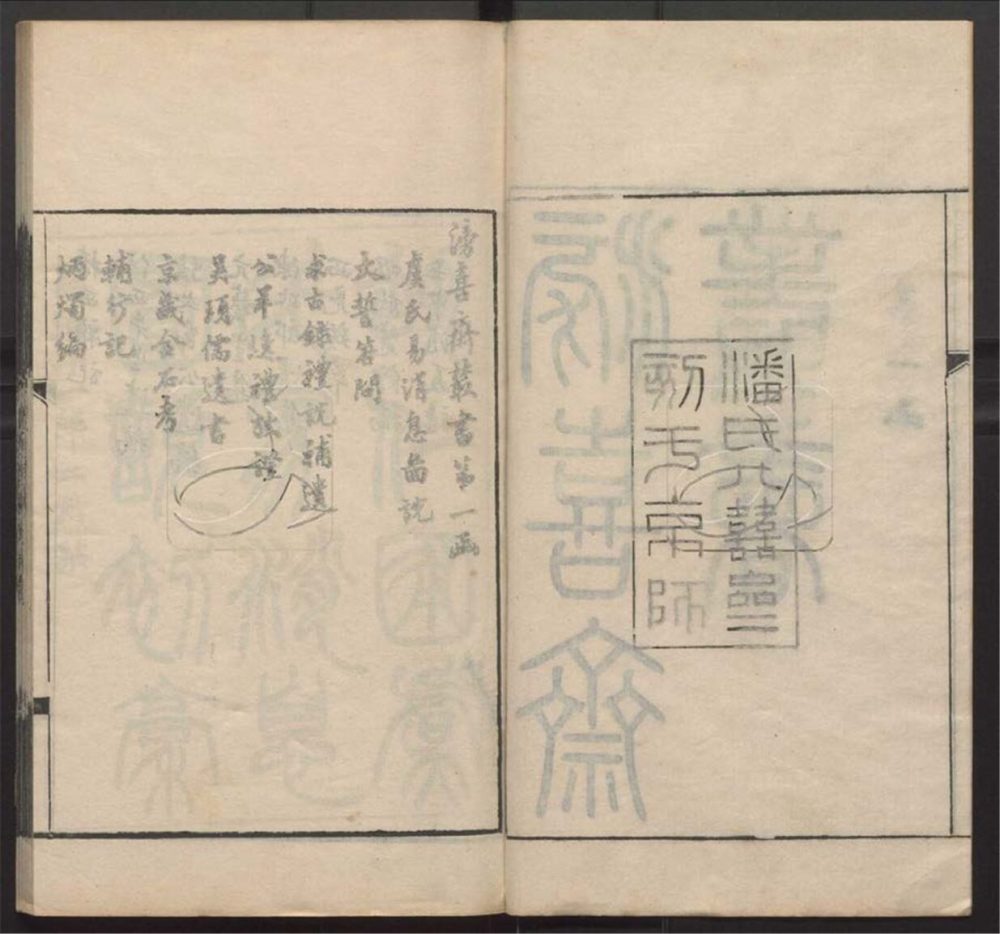 潘氏八囍齋
刻于京師
滂喜齋叢書第一函
虞氏易消息圖說
大誓答問
求古錄禮說補遺
公羊逸禮攷證
吳頊儒遺書
京畿金石考
輔行記
炳燭編